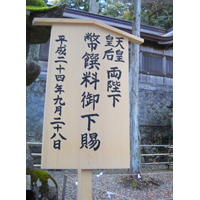 天皇
皇后 両陛下
幣饌料御下賜
平成二十四年九月二十八日